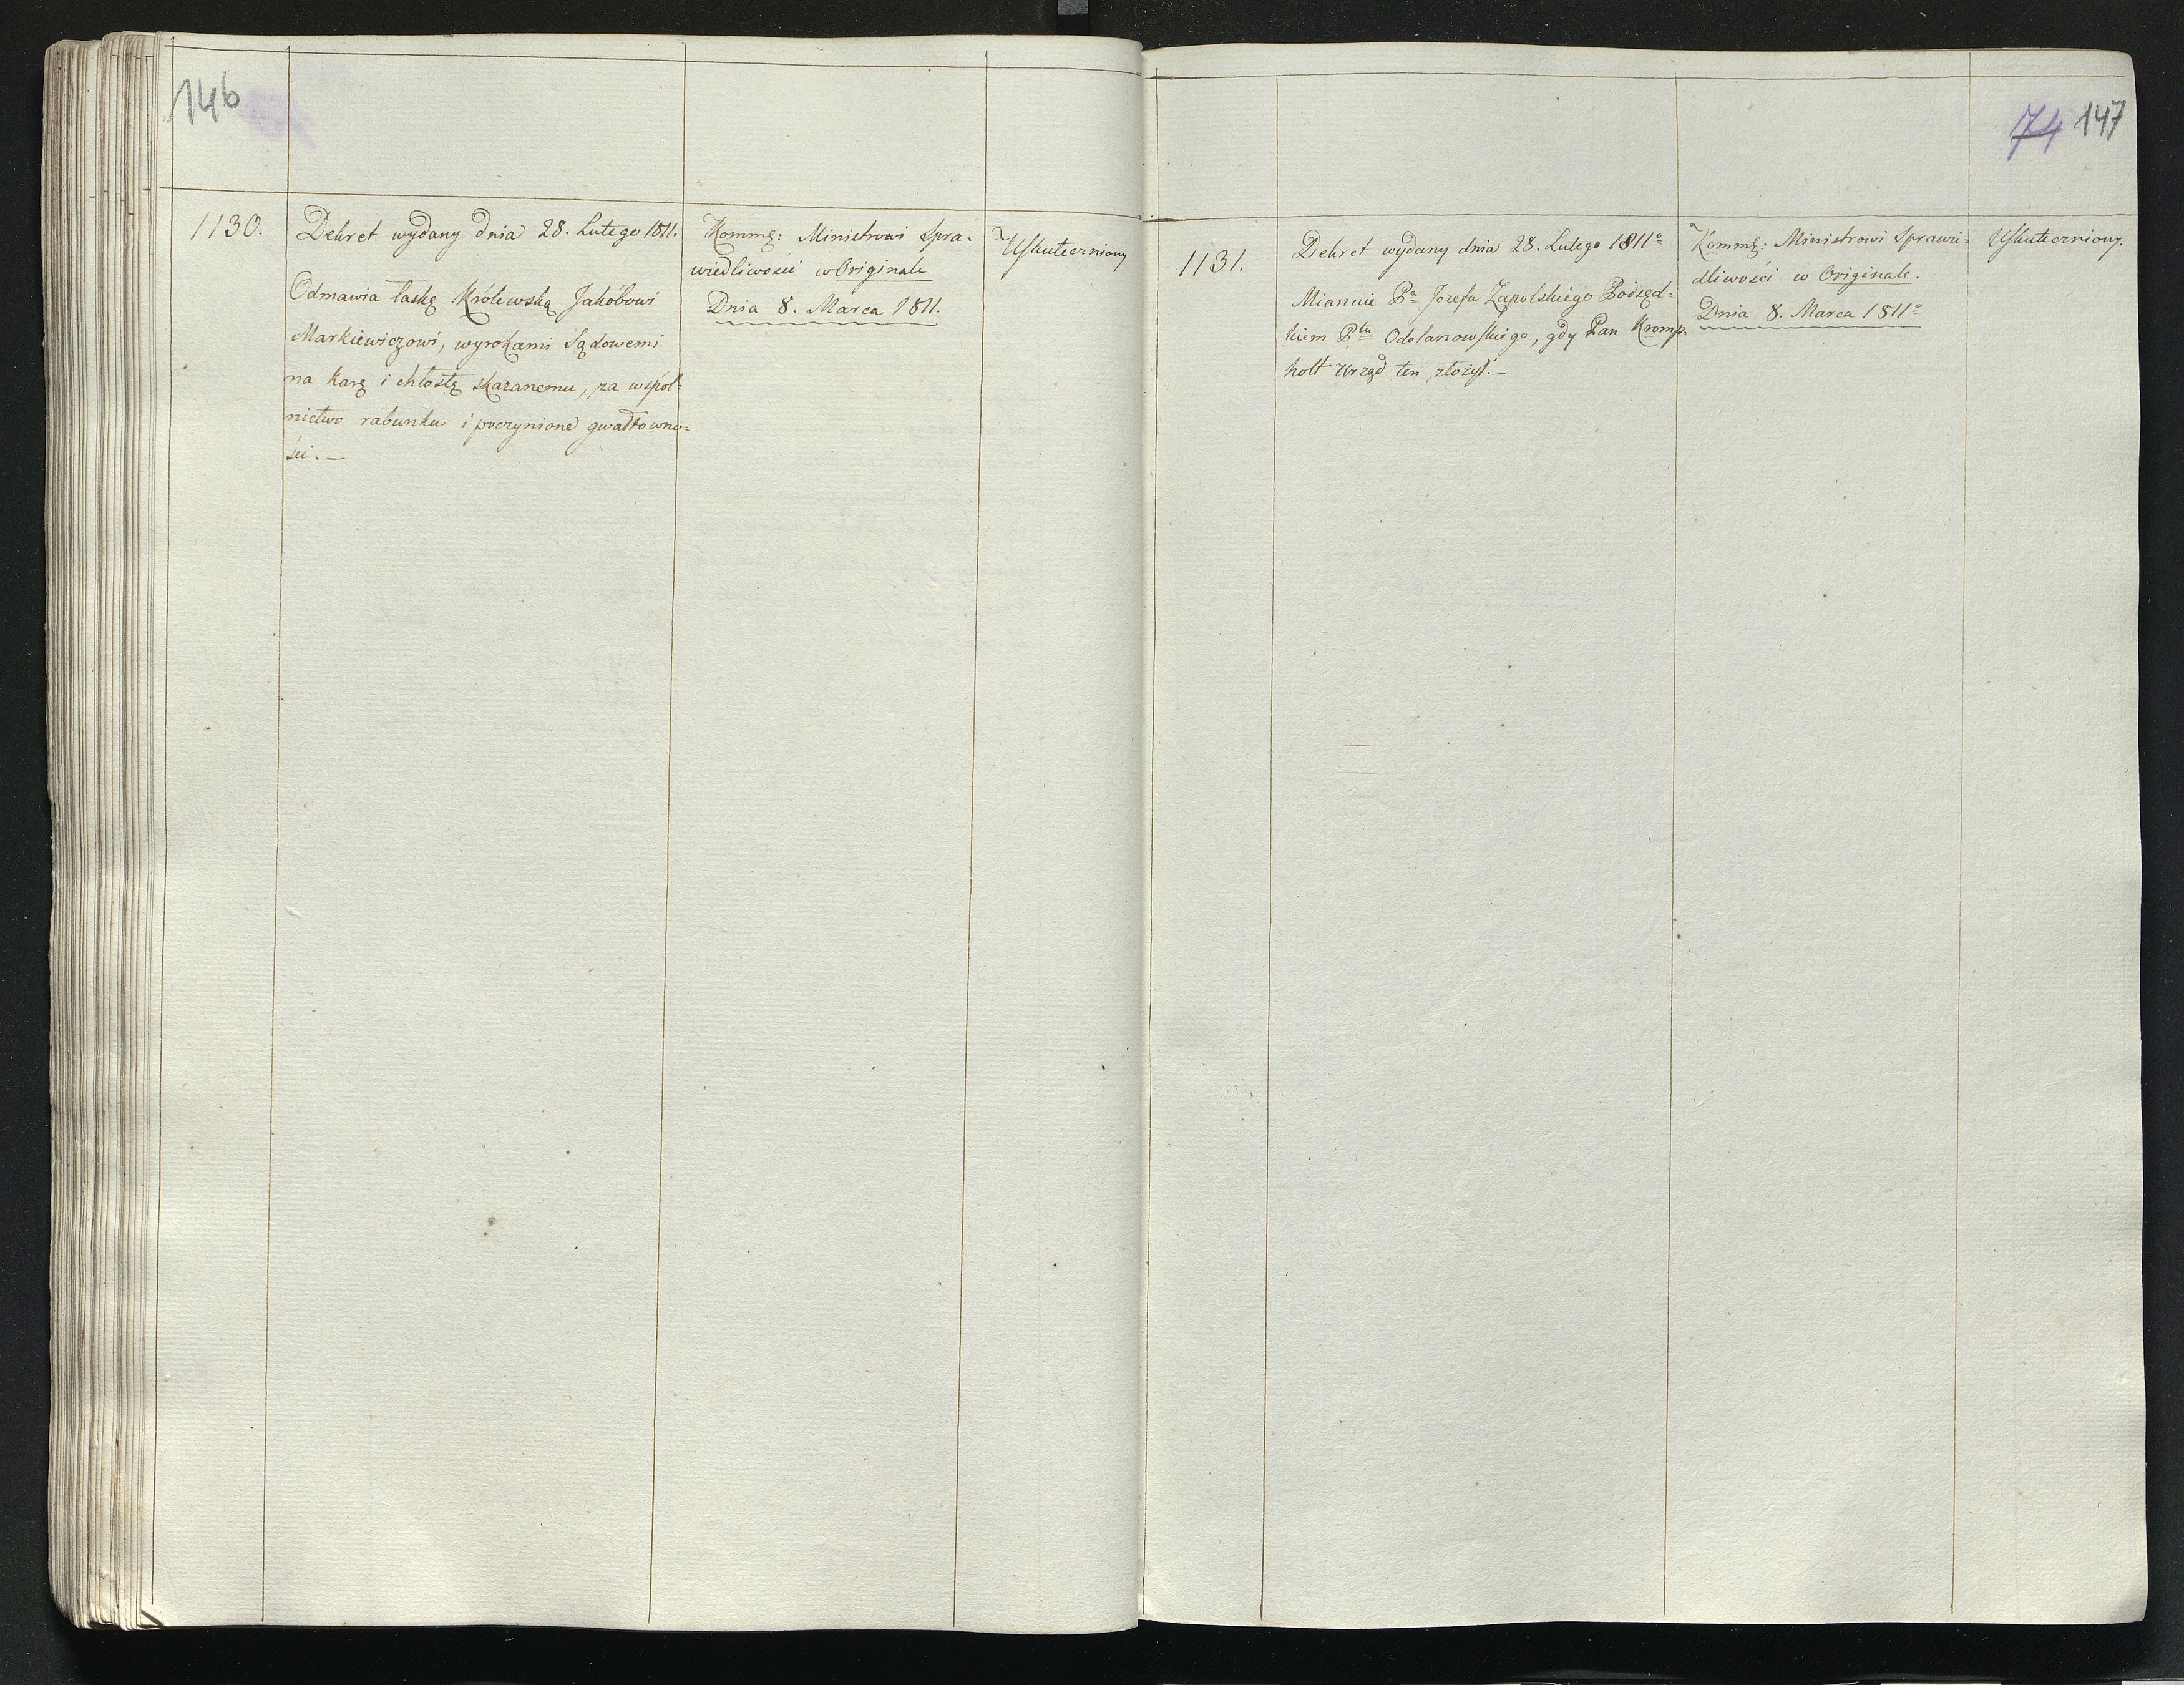 146
1130.
Dekret wydany dnia 28. Lutego 1811.
Odmawia łaskę Królewską Jakóbowi
Markiewiczowi, wyrokami Sądowemi
na karę i chłostę skazanemu, za wspól-
nictwo rabunku i poczynione gwałtowno=
ści. —
Kommę: Ministrowi Spra-
wiedliwości w Originale
Dnia 8. Marca 1811.
Uskuteczniony
74 147
1131.
Dekret wydany dnia 28. Lutego 1811º
Mianuie Pª Jozefa Zapolskiego Podsęd=
kiem Ptu Odolanowskiego, gdy Pan Kromp-
holt Urząd ten złożył. —
Kommę: Ministrowi Sprawie=
dliwości w Originale.
Dnia 8. Marca 1811º
Uskuteczniony.